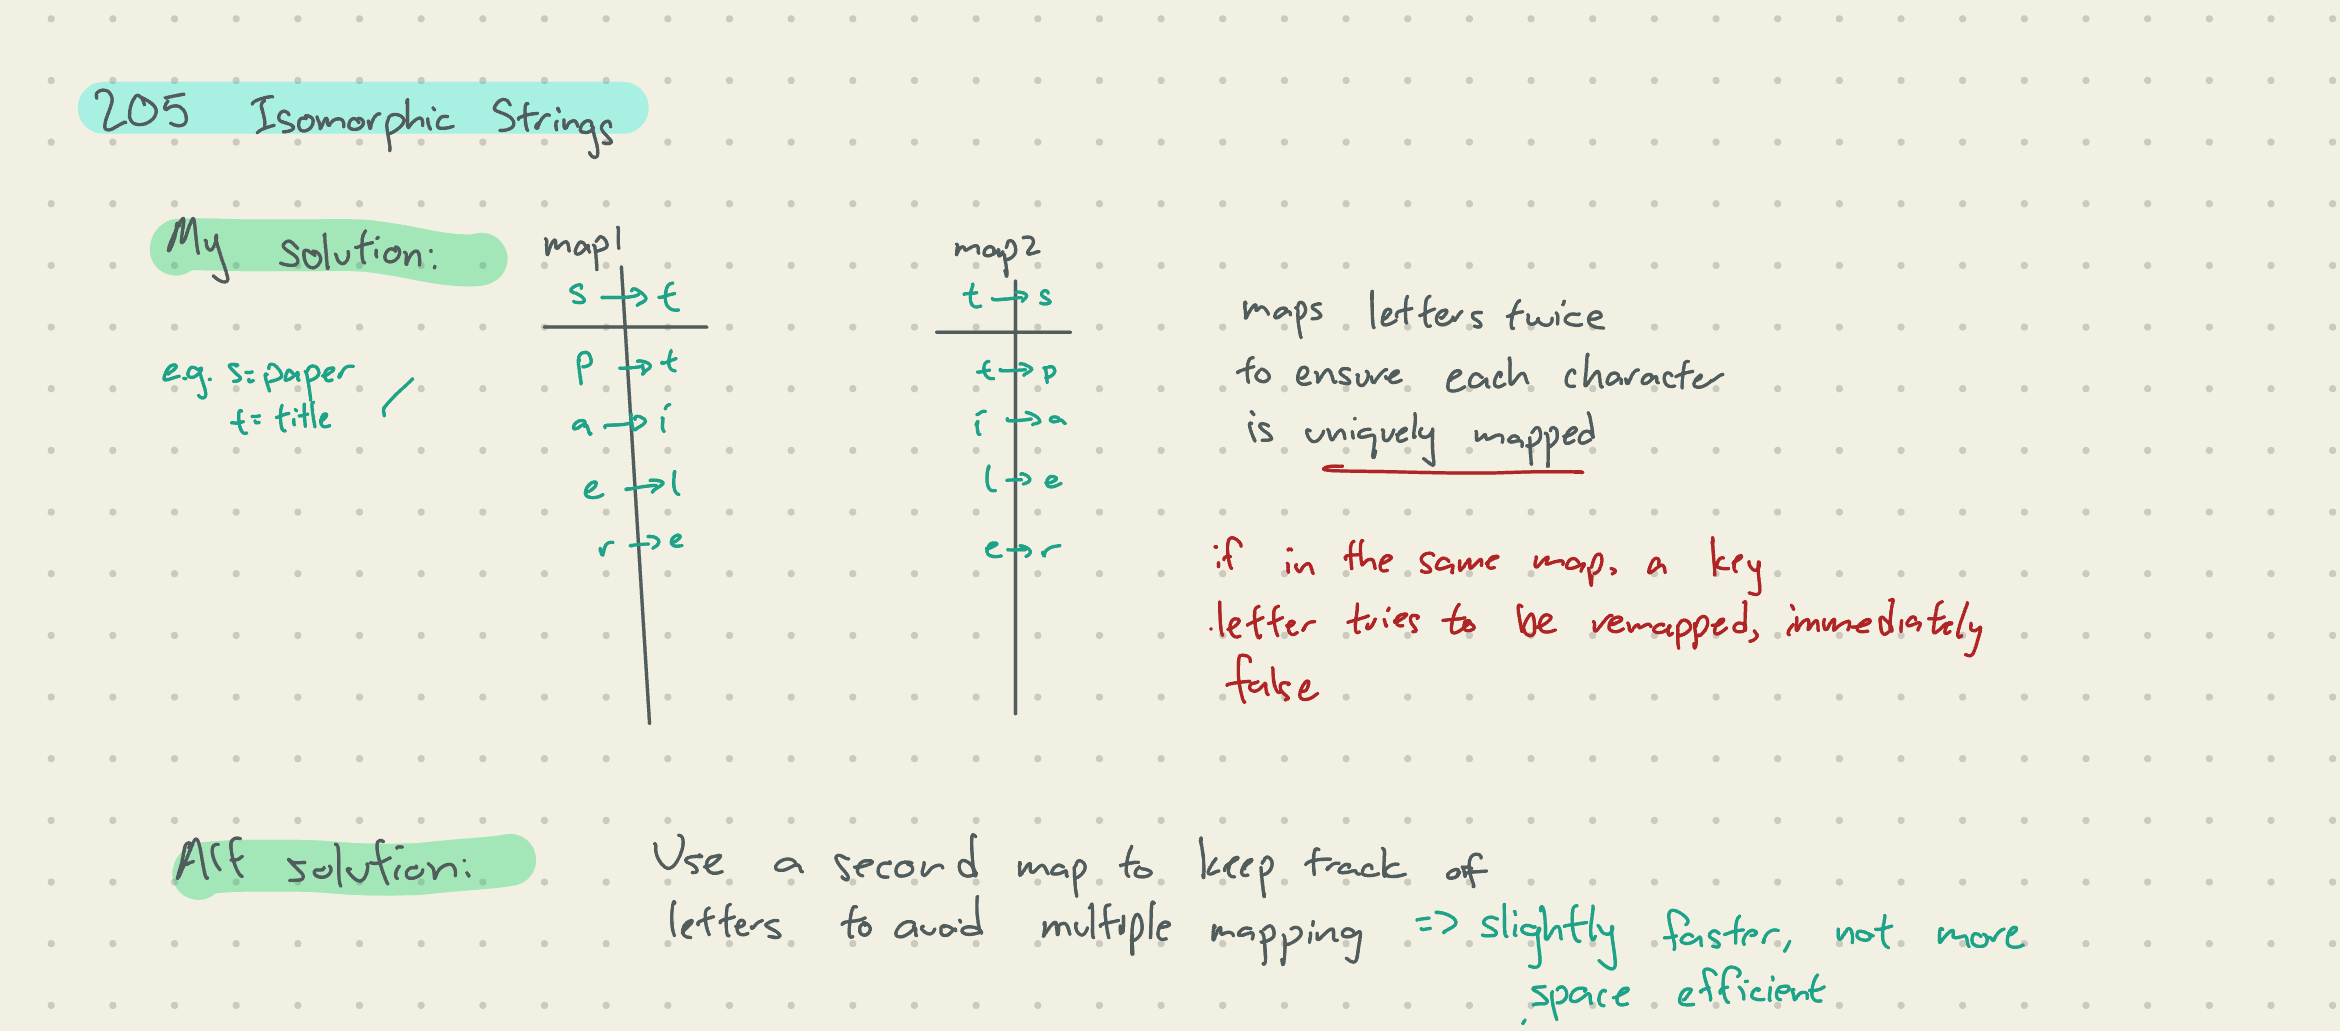 205 Isomorphic Strings
My solution:
e.g. s=paper
t=title
map1
s → t
p → t
a → i
e → l
r → e
map2
t → s
t → p
i → a
l → e
e → r
maps letters twice
to ensure each character
is uniquely mapped
if in the same map, a key
letter tries to be remapped, immediately
false
Alt solution:
Use a second map to keep track of
letters to avoid multiple mapping => slightly faster, not more
space efficient